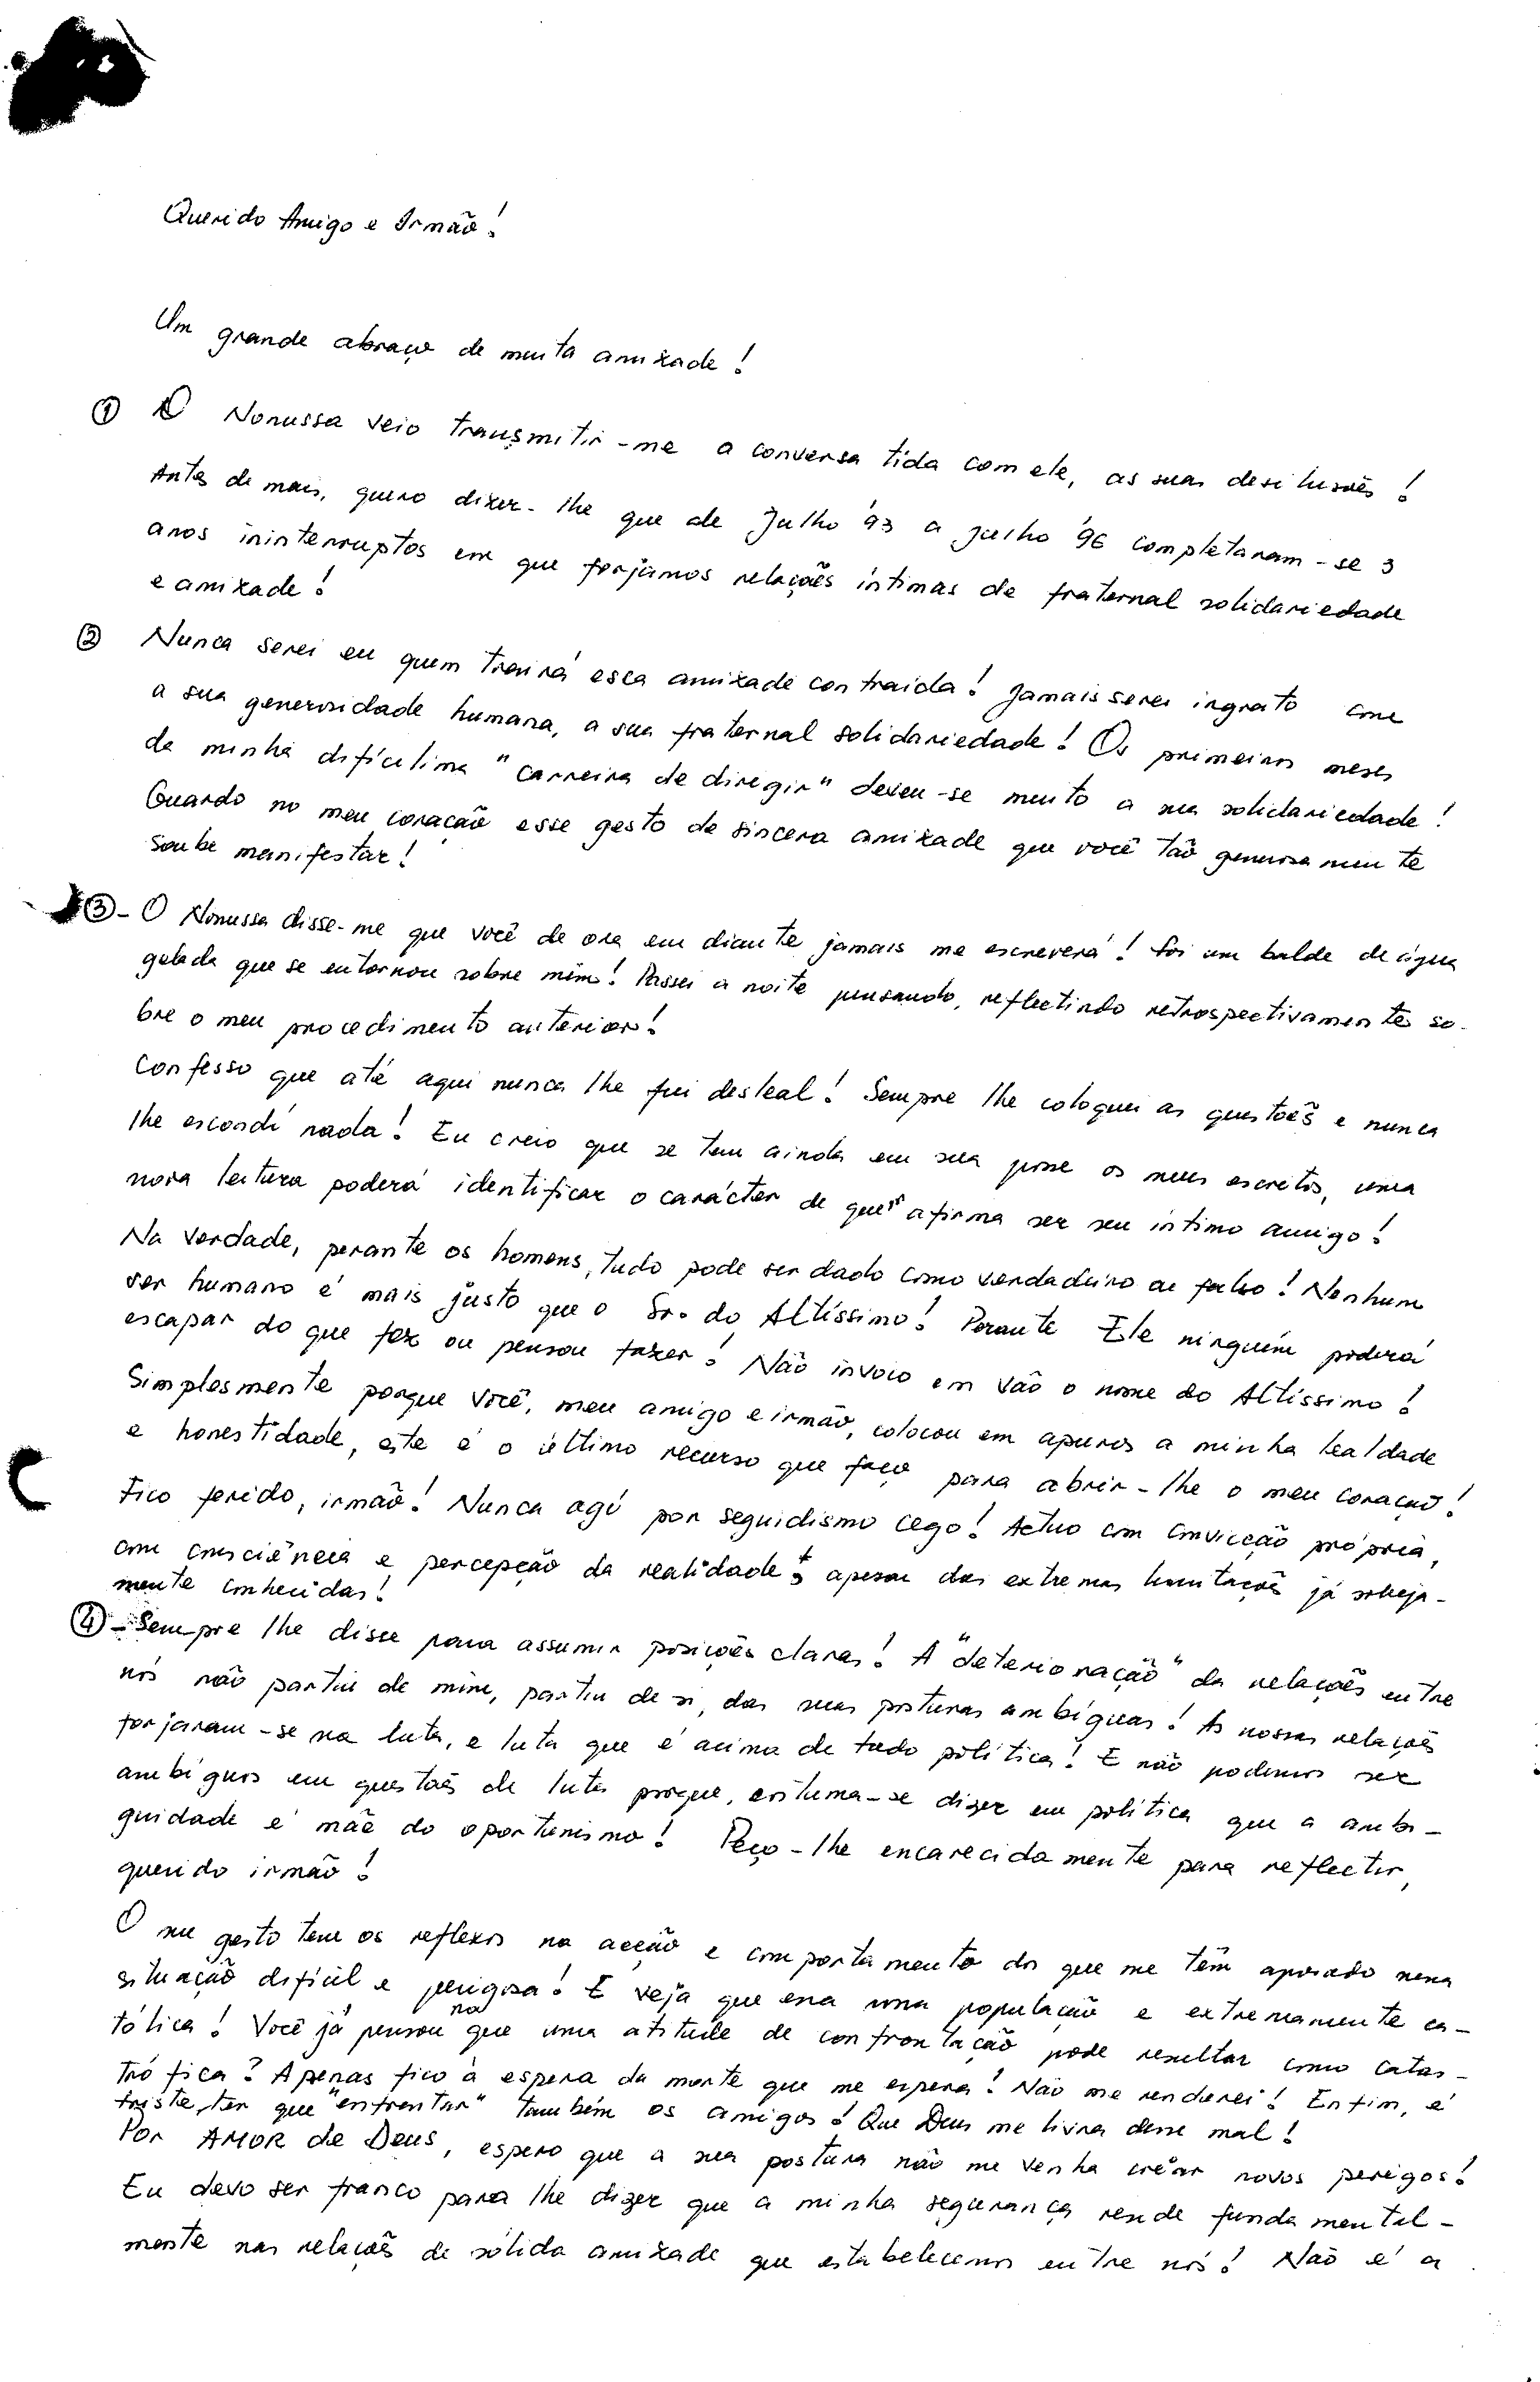 Querido Amigo e Irmão!
Um grande abraço de muita amizade!
① O Nonussa veio transmitir-me a conversa tida com ele, as suas desilusões!
Antes de mais, quero dizer-lhe que de Julho '93 a Julho '96 completaram-se 3
anos ininterruptos em que forjamos relações íntimas de fraternal solidariedade
e amizade!
② Nunca serei eu quem trairá essa amizade contraída! Jamais serei ingrato com
a sua generosidade humana, a sua fraternal solidariedade! Os primeiros meses
da minha dificílima "carreira de dirigir" deveu-se muito a sua solidariedade!
Guardo no meu coração esse gesto de sincera amizade que você tão generosamente
soube manifestar!
③ - O Nonussa disse-me que você de ora em diante jamais me escreverá! Foi um balde de água
gelada que se entornou sobre mim! Passei a noite pensando, reflectindo retrospectivamente so-
bre o meu procedimento anterior!
Confesso que até aqui nunca lhe fui desleal! Sempre lhe coloquei as questões e nunca
lhe escondí nada! Eu creio que se tem ainda em sua posse os meus escritos, uma
nova leitura poderá identificar o carácter de quem afirma ser seu íntimo amigo!
Na verdade, perante os homens, tudo pode ser dado como verdadeiro ou falso! Nenhum
ser humano é mais justo que o Sr. do Altíssimo! Perante Ele ninguém poderá
escapar do que fez ou pensou fazer! Não invoco em vão o nome do Altíssimo!
Simplesmente porque você, meu amigo e irmão, colocou em apuros a minha lealdade
e honestidade, este é o último recurso que faço para abrir-lhe o meu coração!
Fico ferido, irmão! Nunca agí por seguidismo cego! Actuo com convicção própria,
com consciência e percepção da realidade, apesar das extremas limitações já sobeja-
mente conhecidas!
④ - Sempre lhe disse para assumir posições claras! A "deterioração" da relações entre
nós não partiu de mim, partiu de si, das suas posturas ambíguas! As nossas relações
forjaram-se na luta, e luta que é acima de tudo política! E não podemos ser
ambíguos em questões de luta porque, costuma-se dizer em política que a ambi-
guidade é mãe do oportunismo! Peço-lhe encarecidamente para reflectir,
querido irmão!
O seu gesto tem os reflexos na acção e comportamento dos que me têm apoiado numa
situação difícil e perigosa! E veja que era uma população e extremamente ca-
tólica! Você já pensou no que uma atitude de confrontação pode resultar como catas-
trófica? Apenas fico à espera da morte que me espera! Não me renderei! Enfim, é
triste, ter que "enfrentar" também os amigos! Que Deus me livra desse mal!
Por AMOR de Deus, espero que a sua postura não me venha crêar novos perigos!
Eu devo ser franco para lhe dizer que a minha segurança reside fundamental-
mente nas relações de sólida amizade que estabelecemos entre nós! Não é a